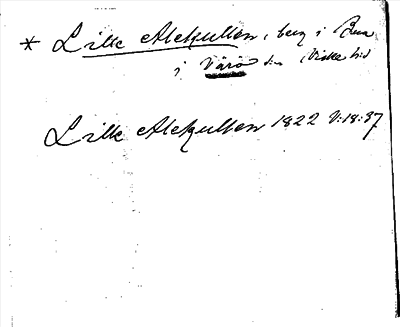 * Lille Alekullen, berg i Bua
i Värö sn Viske hd
Lille Alekullen 1822 V:18:37